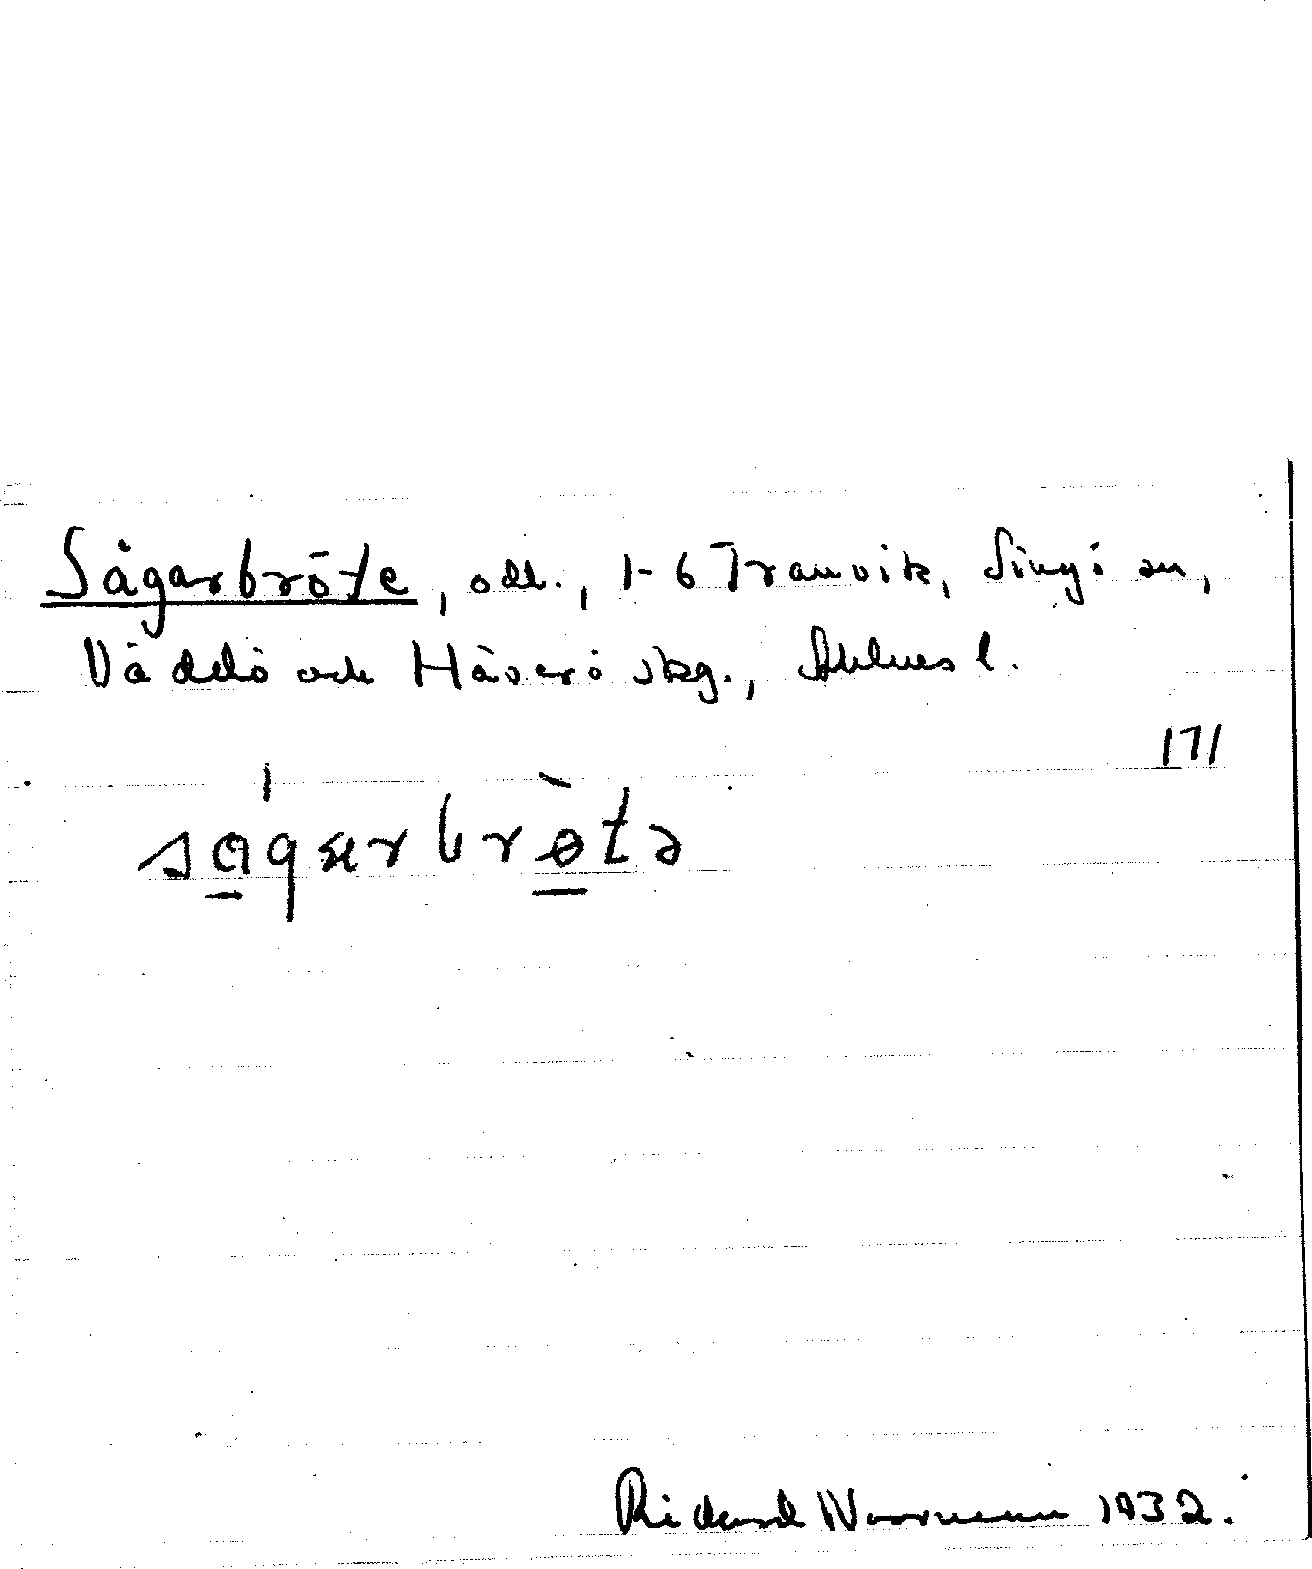 Sågarbröte, odl., 1-6 Tranvik, Singö sn,
Väddö och Häverö skg., Sthlms l.
171
sågarbrötə
Rickard Norrman 1932.